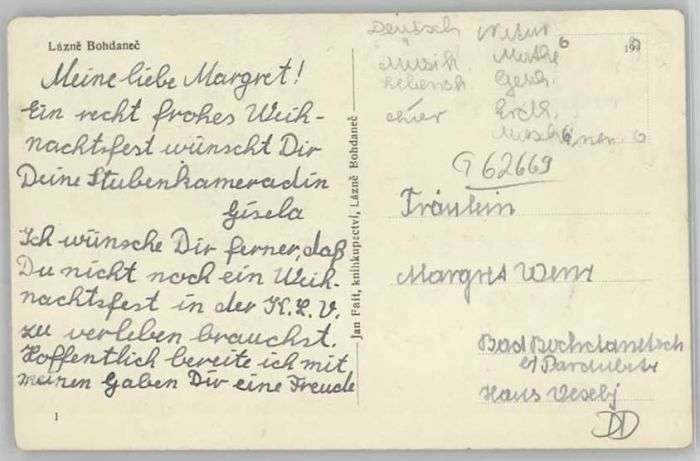 Lázně Bohdaneč
Meine liebe Margret!
Ein recht frohes Weih-
nachtsfest wünscht Dir
Deine Stubenkameradin
Gisela
Ich wünsche Dir ferner, daß
Du nicht noch ein Weih-
nachtsfest in der K.L.V.
zu verleben brauchst.
Hoffentlich bereite ich mit
meinen Gaben Dir eine Freude
1
Jan Fait, knihkupectví, Lázně Bohdaneč
Deutsch
Musik
Mathe 6
Gesch.
Erdk.
G 62669
Fräulein
Margret
Bad Bochdanetsch
b/ Pardubitz
Haus Vesely
DD